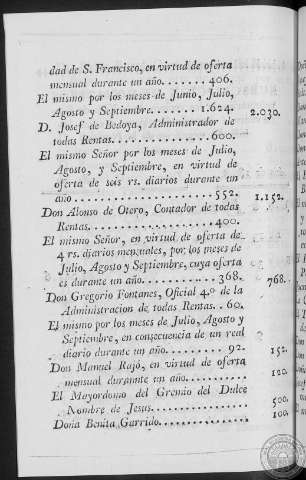 dad de S. Francisco, en virtud de oferta
mensual durante un año....... 406.
El mismo por los meses de Junio, Julio,
Agosto y Septiembre......... 1.624. 2.030.
D. Josef de Bedoya, Administrador de
todas Rentas............... 600.
El mismo Señor por los meses de Julio,
Agosto, y Septiembre, en virtud de
oferta de seis rs. diarios durante un
año...................... 552. 1.152.
Don Alonso de Otero, Contador de todas
Rentas.................... 400.
El mismo Señor, en virtud de oferta de
4 rs. diarios mensuales, por los meses de
Julio, Agosto y Septiembre, cuya oferta
es durante un año........... 368. 768.
Don Gregorio Fontanes, Oficial 4.º de la
Administracion de todas Rentas.. 60.
El mismo por los meses de Julio, Agosto y
Septiembre, en consecuencia de un real
diario durante un año.......... 92. 152.
Don Manuel Rajó, en virtud de oferta
mensual durante un año......... 120.
El Mayordomo del Gremio del Dulce
Nombre de Jesus............... 500.
Doña Benita Garrido............. 100.